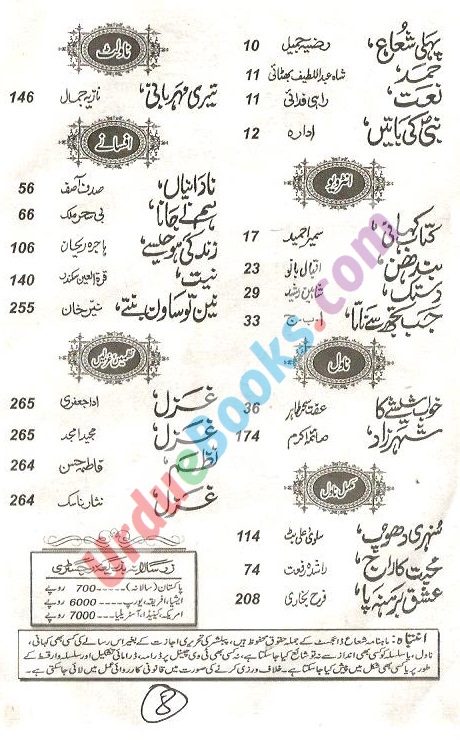 پہلی شعاع، رضیہ جمیل 10
حمد، شاہ عبداللطیف بھٹائی 11
نعت، راہی فدائی 11
نبیؐ کی باتیں، ادارہ 12
انٹرویو
کتاب کہانی، سمیرا حمید 17
بندھن، اقبال بانو 23
دستک، شاہین رشید 29
جب تجھ سے ناتا، ا۔ب۔ج 33
ناول
خواب شیشے کا عفت سحر طاہر 36
شہرزاد، صائمہ اکرم 174
مکمل ناول
سنہری دھوپ، سلویٰ علی بٹ 114
محبت کا راج، راشدہ رفعت 74
عشق برہنہ پا، فرح بخاری 208
ناولٹ
تیری مہربانی، نادیہ جمال 146
افسانے
نادانیاں، صدف آصف 56
ہم نے جانا، بی سحر ملک 66
زندگی ہو جیسے، ہاجرہ ریحان 106
نیت، قرۃ العین سکندر 140
نین تو ساون بنتے، نیئر خان 255
نظمیں غزلیں
غزل، ادا جعفری 265
غزل، مجید امجد 265
نظم، فاطمہ حسن 264
غزل، نثار ناسک 264
زر سالانہ بذریعہ رجسٹری
پاکستان (سالانہ) ----- 700 روپے
ایشیا، افریقہ، یورپ ---- 6000 روپے
امریکہ، کینیڈا، آسٹریلیا ---- 7000 روپے
انتباہ: ماہنامہ شعاع ڈائجسٹ کے جملہ حقوق محفوظ ہیں، پبلشر کی تحریری اجازت کے بغیر اس رسالے کی کسی بھی کہانی،
ناول، یا سلسلہ کو کسی بھی انداز سے نہ تو شائع کیا جا سکتا ہے، نہ کسی بھی ٹی وی چینل پر ڈرامہ، ڈرامائی تشکیل اور سلسلہ وار قسط کے
طور پر یا کسی بھی شکل میں پیش کیا جا سکتا ہے۔ خلاف ورزی کرنے کی صورت میں قانونی کارروائی عمل میں لائی جا سکتی ہے۔
8
UrdueBooks.com